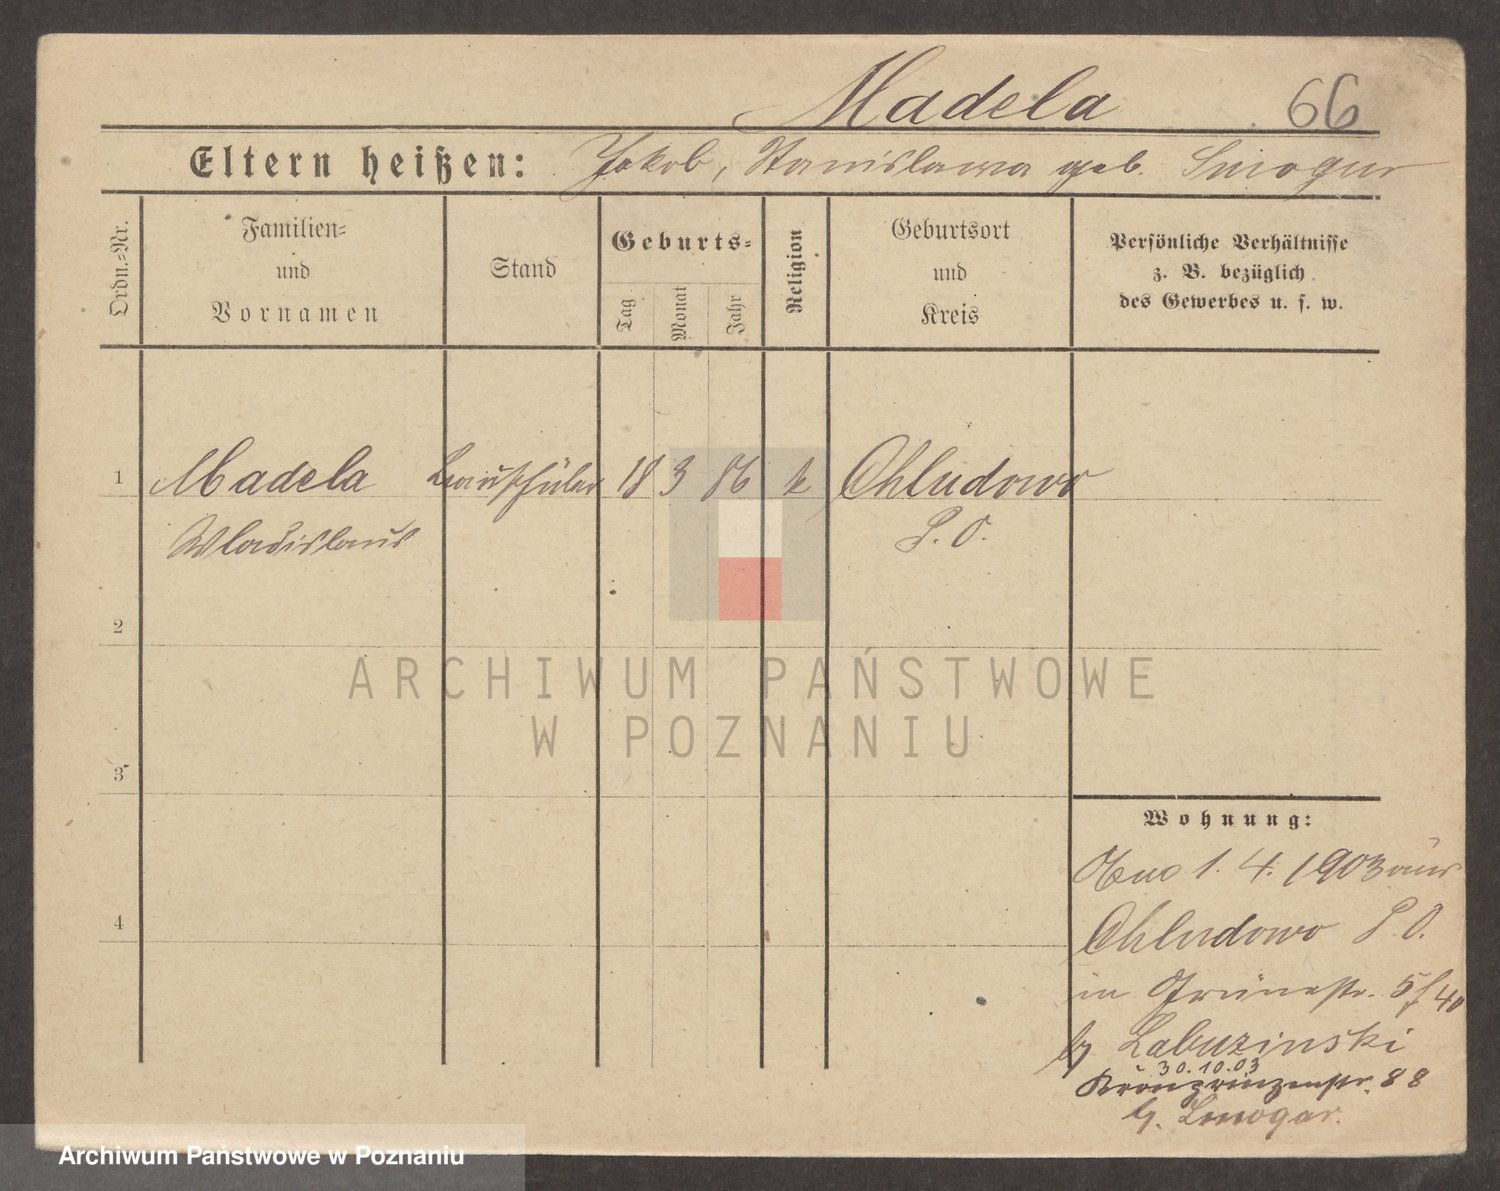 Madela 66
Eltern heißen: Jakob, Stanislawa geb. Smogur
Ordn.-Nr.
Familien-
und
Vornamen
Stand
Geburts-
Tag
Monat
Jahr
Religion
Geburtsort
und
Kreis
Persönliche Verhältnisse
z. B. bezüglich
des Gewerbes u. s. w.
1 Madela 18 3 86 k Chludowo
Wladislaus P. O.
2
ARCHIWUM PAŃSTWOWE
W POZNANIU
3
Wohnung:
1. 4. 1903 aus
4
Chludowo P. O.
in Grünestr. 5/40
b/ Labuzinski
30.10.03
Kronprinzenstr. 88
b/.
Archiwum Państwowe w Poznaniu